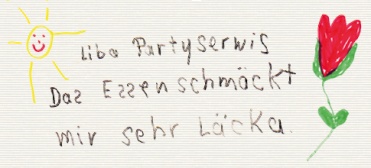 Liba Partyserwis
Daz Ezzen schmäckt
mir sehr Läcka.